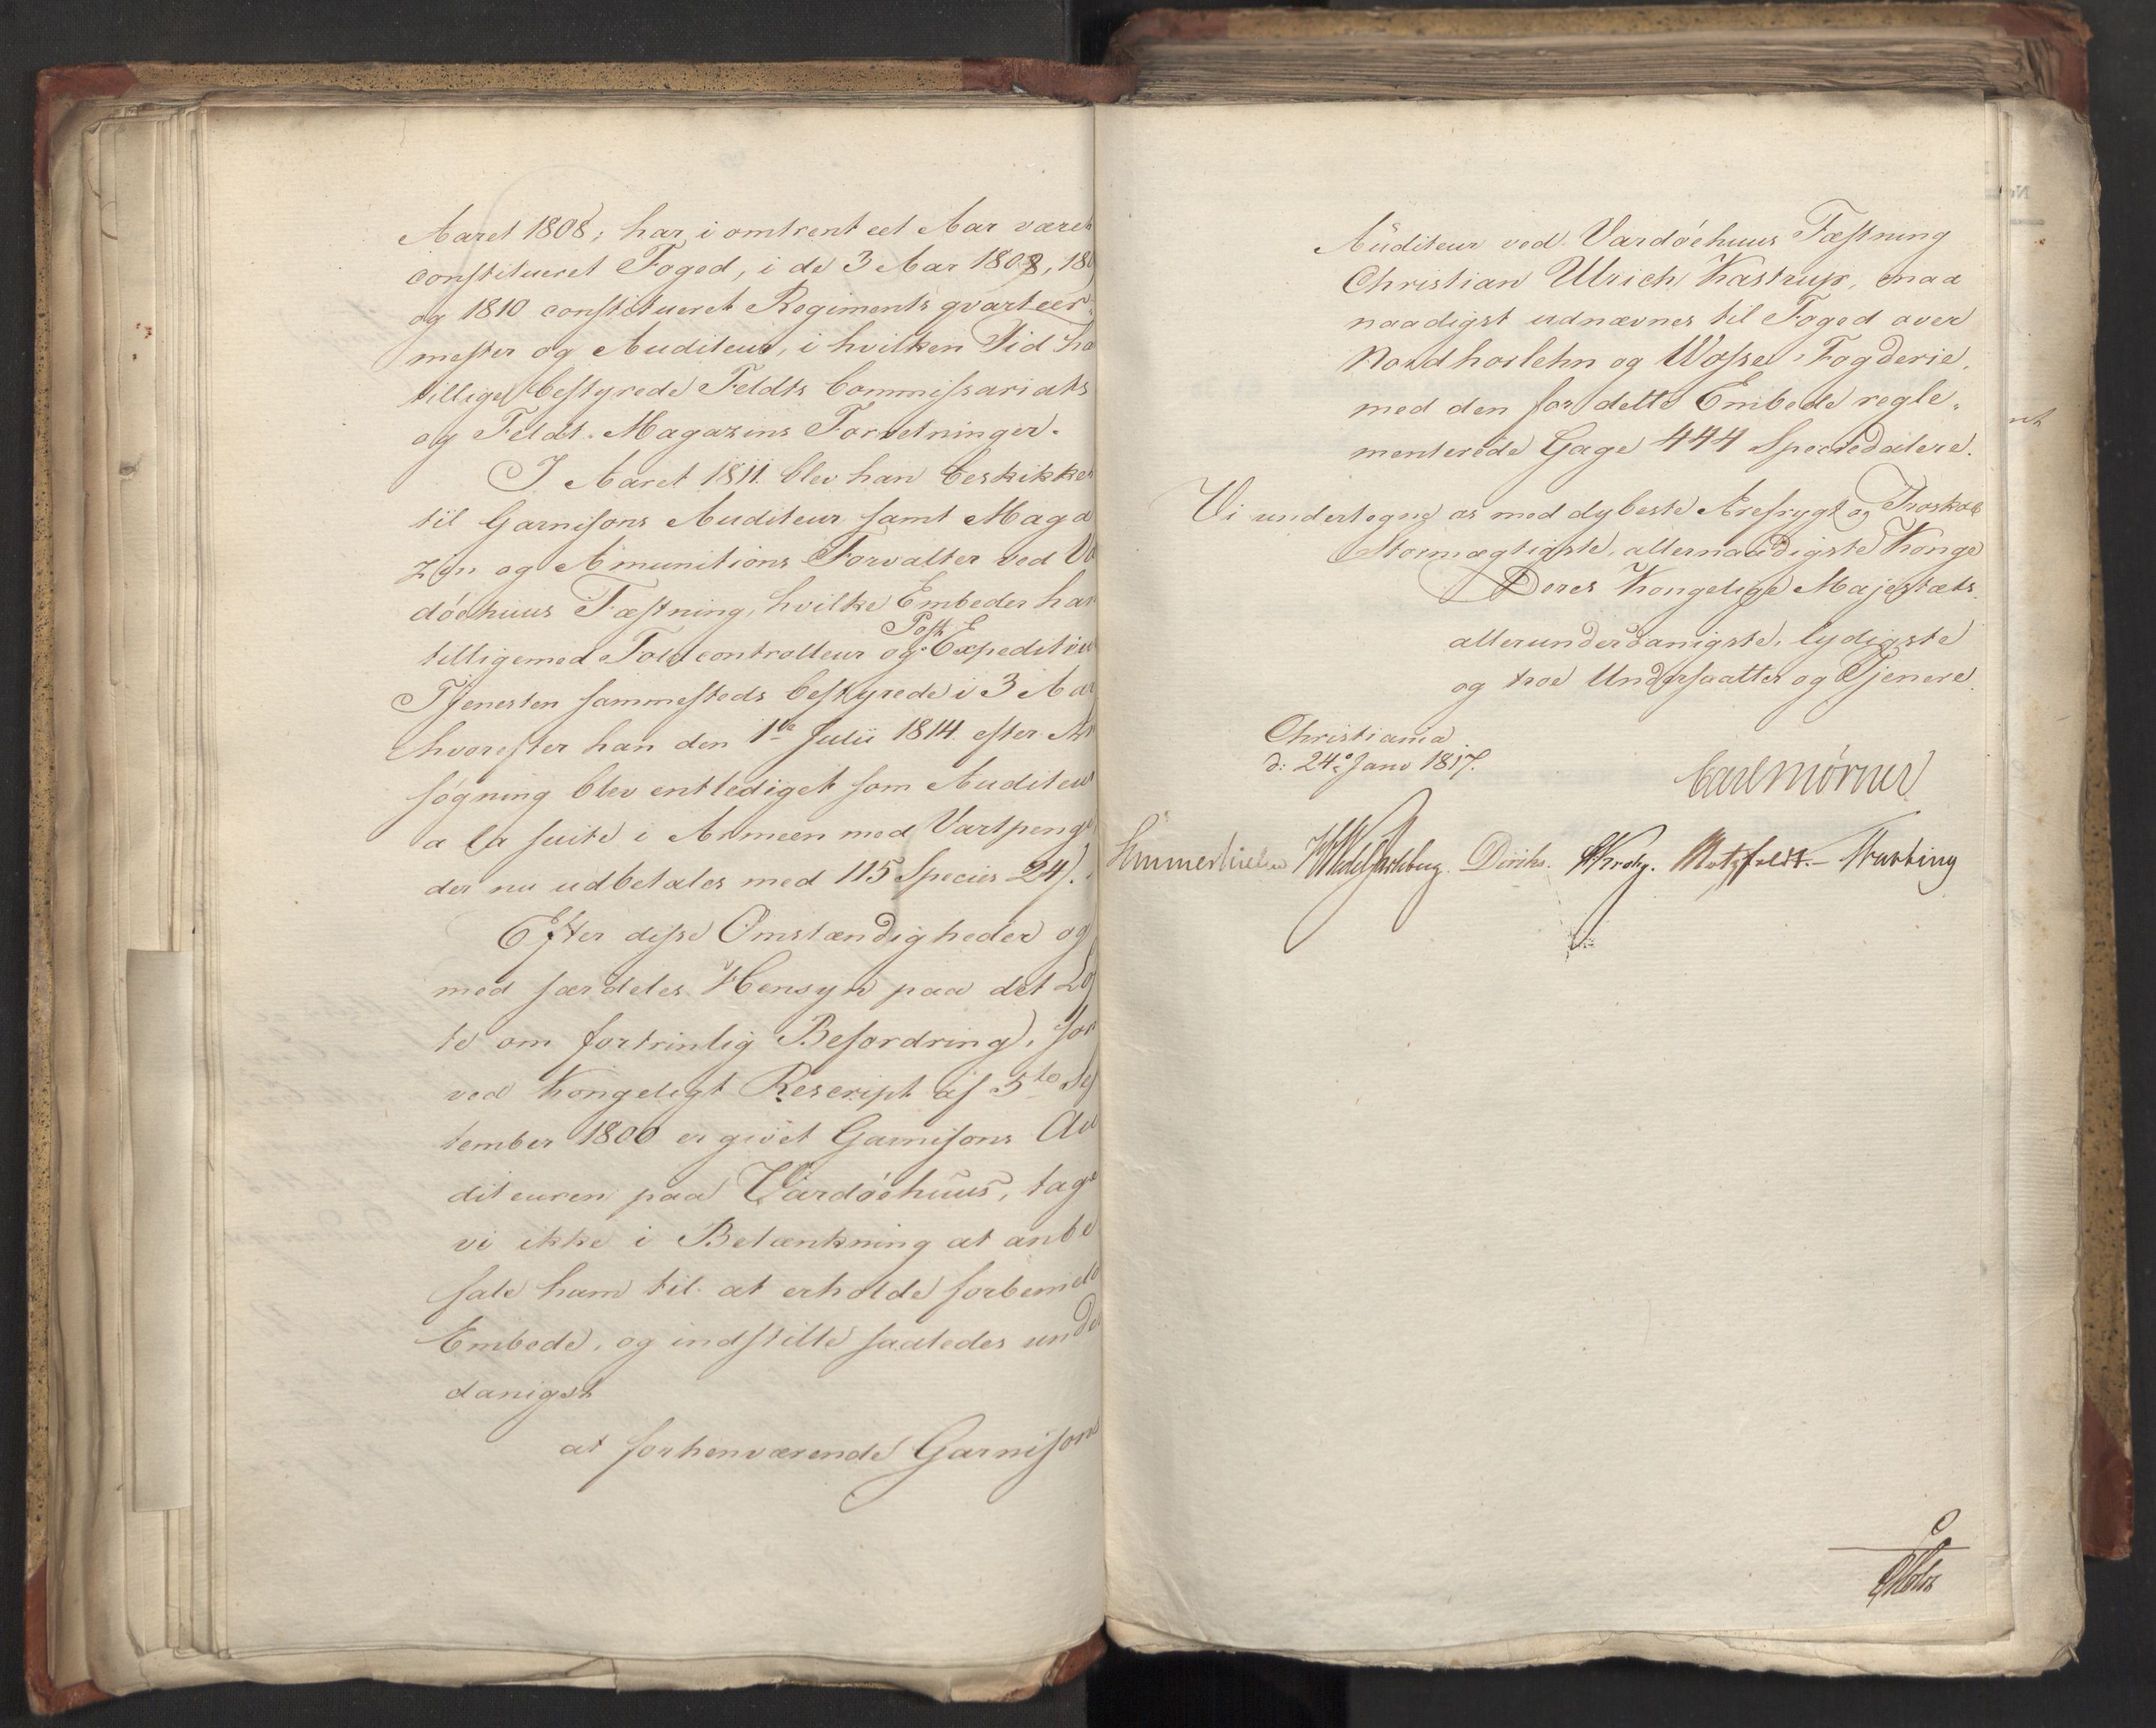 Aaret 1808; har i omtrent eet Aar været
constitueret Foged, i de 3 Aar 1808, 180
og 1810 constitueret Regiments qvarteer-
mester og Auditeur, i hvilken Tid ha
tillige bestyrede Feldts Commissariats
og Feldt-Magazins Forretninger.
I Aaret 1811. blev han beskikket
til Garnisons Auditeur samt Maga
zin og Amunitions Forvalter ved Va
döehuus Fæstning, hvilke Embeder har
tilligemed Toldcontrolleur og Post Expediteur
Tjenesten sammesteds bestyrede i 3 Aar
hvorefter han den 1te Julii 1814 efter An
søgning blev entlediget som Auditeur
a la suite i Armeen med Vartpenge
der nu udbetales med 115 Species 24 s.
Efter disse Omstændigheder og
med særdeles Hensyn paa det Løf
te om fortrinlig Befordring, som
ved Kongeligt Rescript af 5te Sep
tember 1800 er givet Garnisons Au
diteuren paa Vardöehuus, tage
vi ikke i Betænkning at anbe
fale ham til at erholde forbemeldte
Embede, og indstille saaledes under
danigst
at forhenværende Garnisons
Auditeur ved Vardöehuus Fæstning
Christian Ulrich Kastrup, maa
naadigst udnævnes til Foged over
Nordhorlehn og Wosse Fogderie,
med den for dette Embede regle-
menterede Gage 444 Speciedalere.
Vi undertegne os med dybeste Ærefrygt og Troskab
Stormægtigste, allernaadigste Konge
Deres Kongelige Majestæts
allerunderdanigste, lydigste
og troe Undersaatter og Tjenere
Christiania
d: 24de Janv 1817.
Carl Mörner
Sommerhielm HWedelJarlsberg. Diriks. Krohg. Motzfeldt.- Nasting